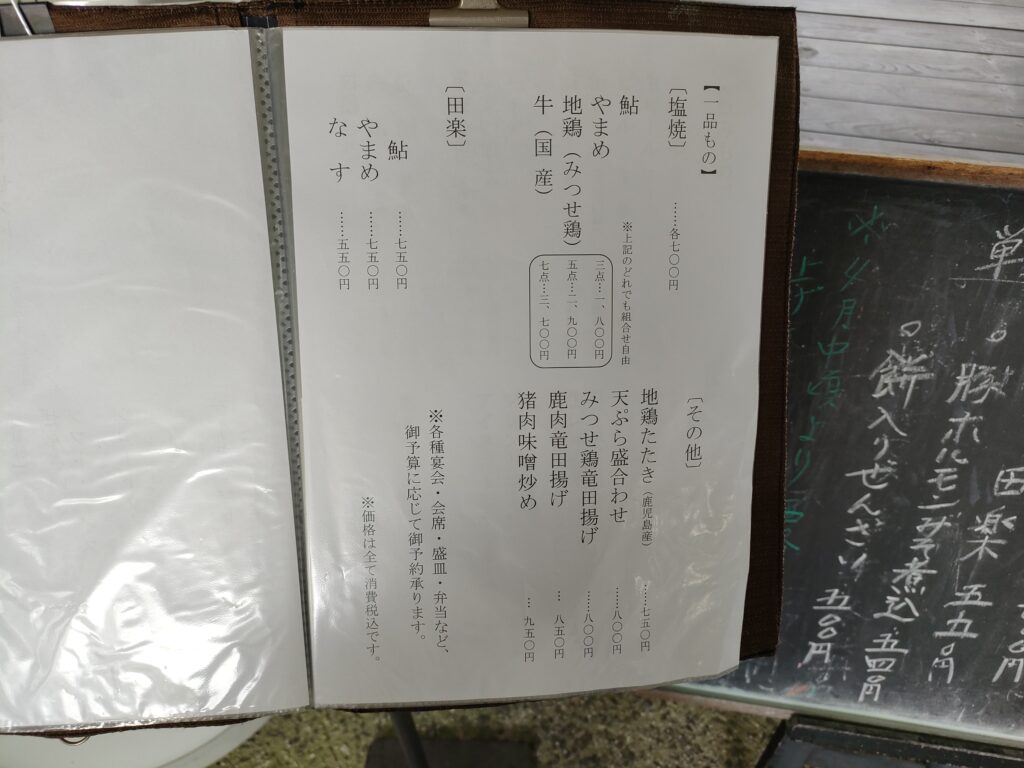 【一品もの】
〔塩焼〕 ……各七〇〇円
鮎
やまめ
地鶏（みつせ鶏）
牛（国産）
※上記のどれでも組合せ自由
三点…一、八〇〇円
五点…二、九〇〇円
七点…三、七〇〇円
〔田楽〕
鮎 ……七五〇円
やまめ ……七五〇円
なす ……五五〇円
〔その他〕
地鶏たたき（鹿児島産） ……七五〇円
天ぷら盛合わせ ……八〇〇円
みつせ鶏竜田揚げ ……八〇〇円
鹿肉竜田揚げ … 八五〇円
猪肉味噌炒め … 九五〇円
※各種宴会・会席・盛皿・弁当など、
御予算に応じて御予約承ります。
※価格は全て消費税込です。
単
田楽 五五〇円
豚ホルモンみそ煮込 五四〇円
餅入りぜんざい 五〇〇円
月中頃より